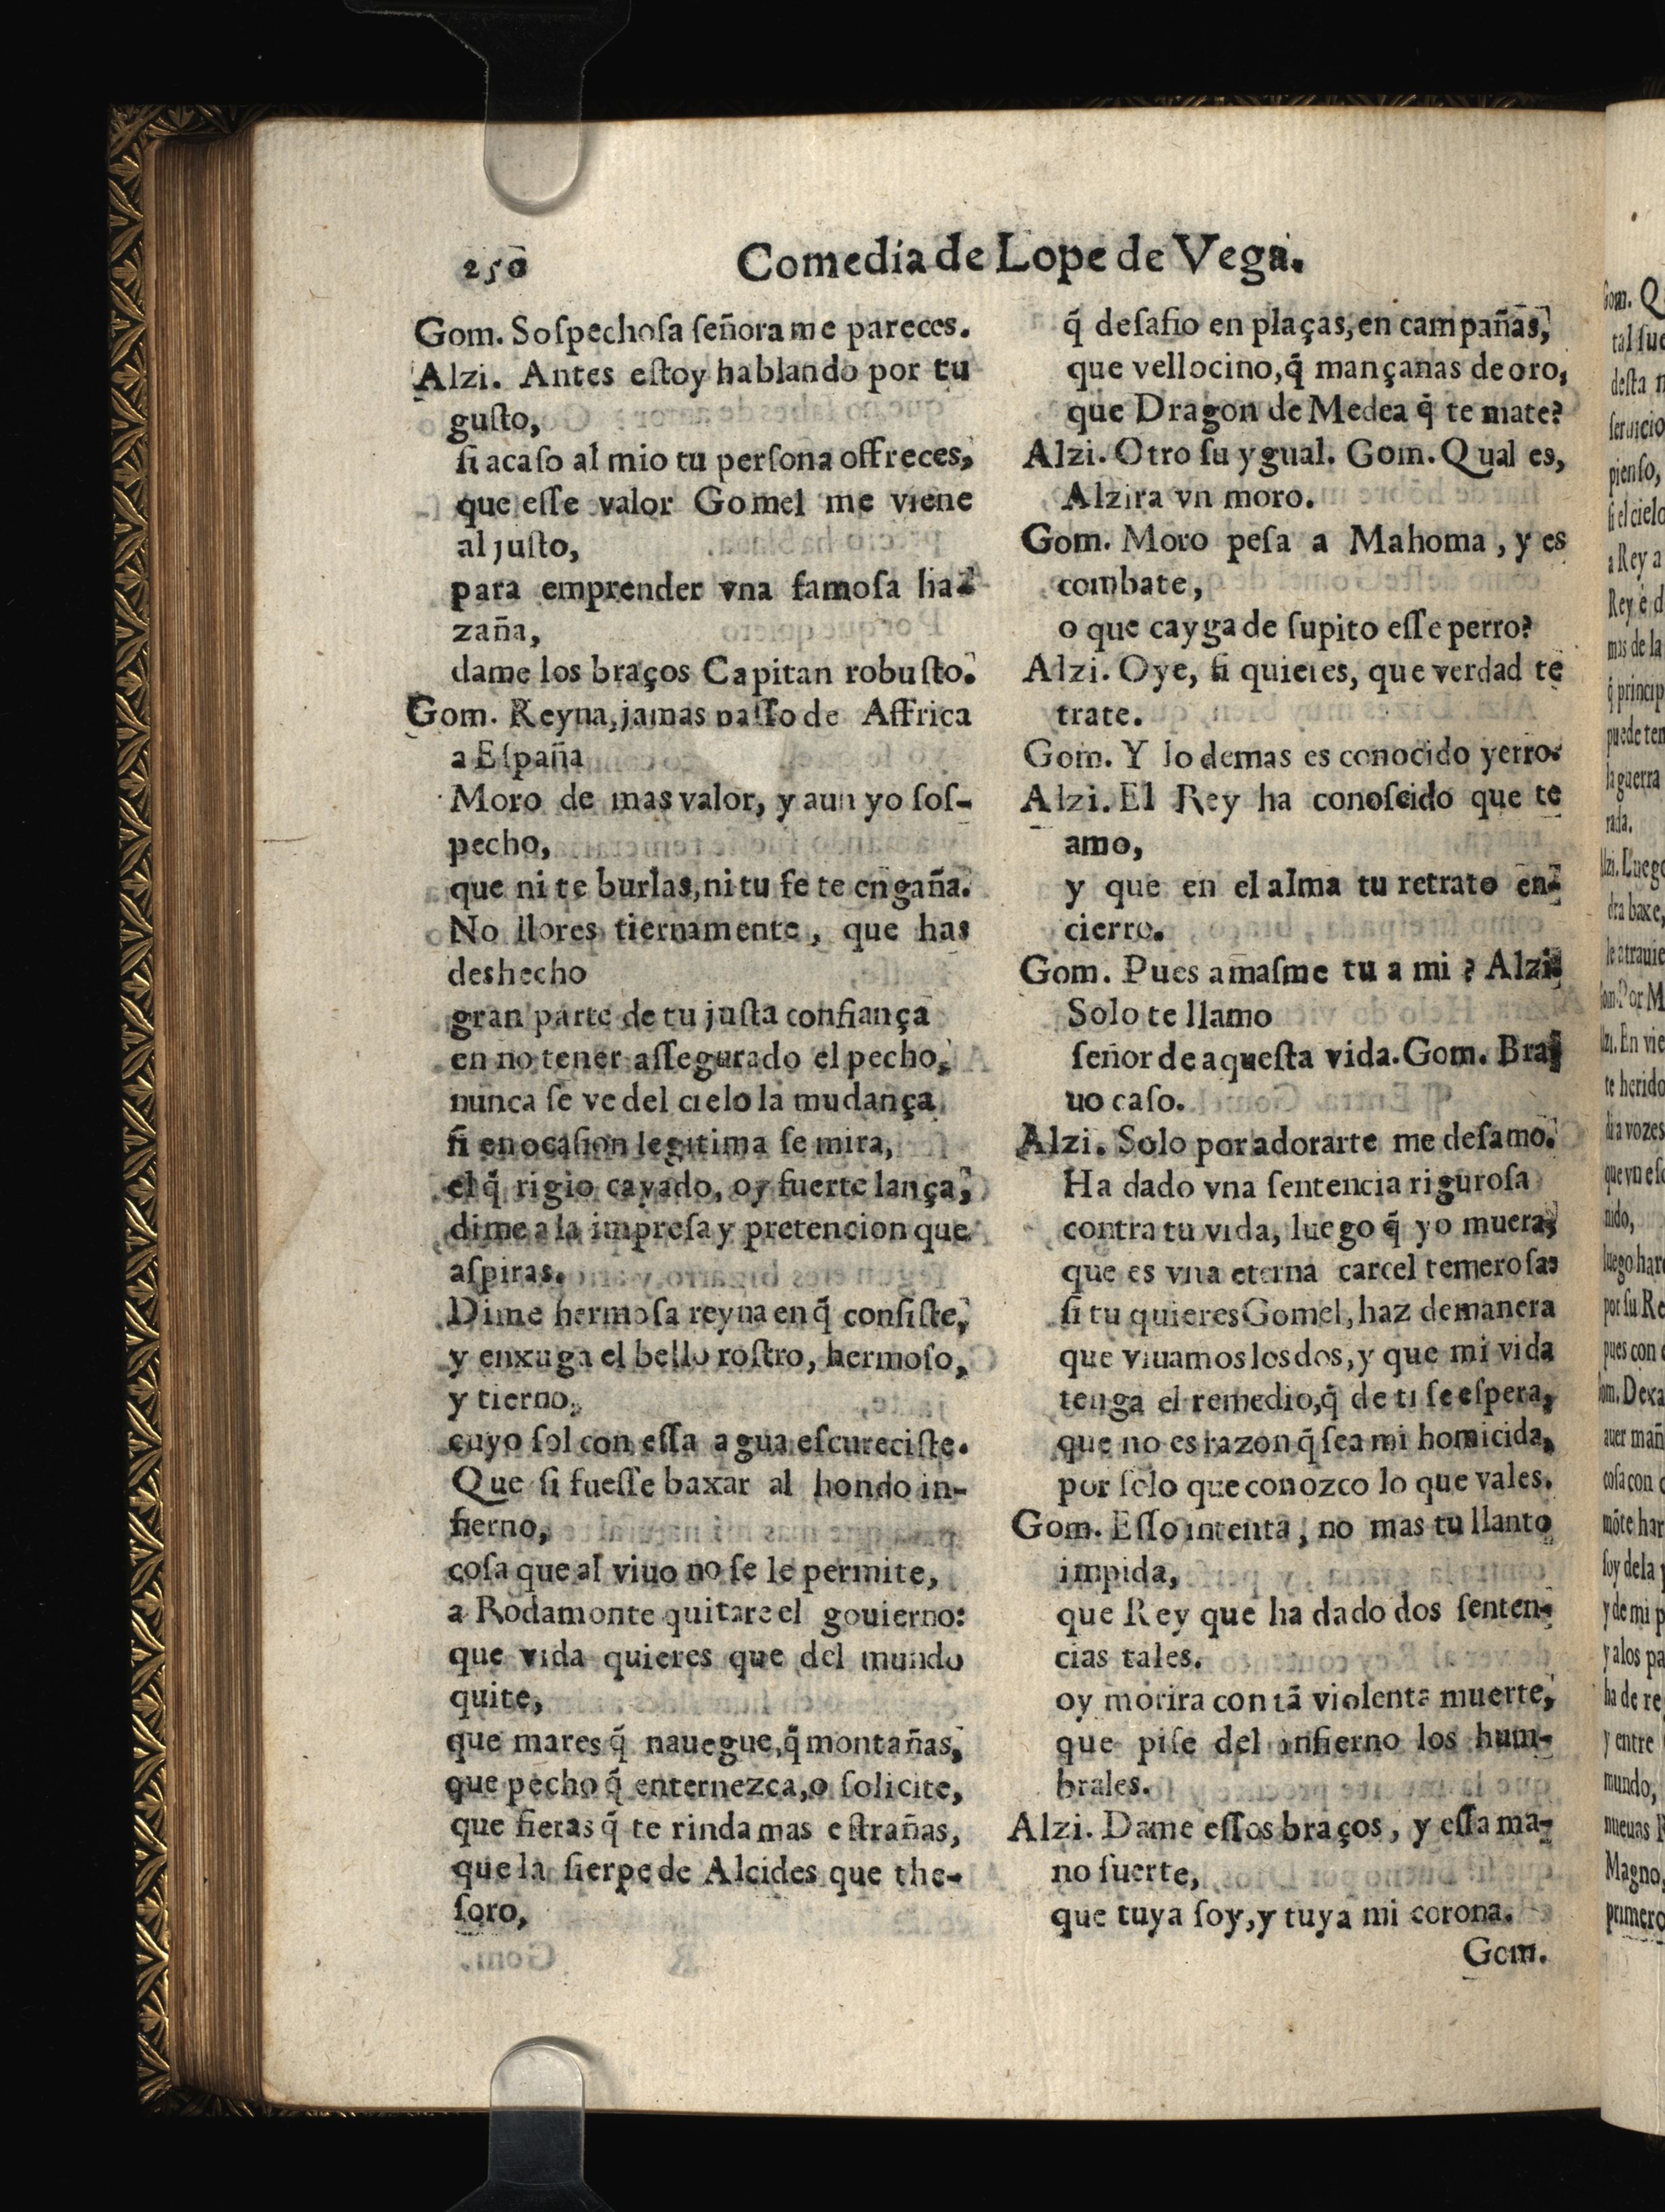 250
Comedia de Lope de Vega.
Gom. Soſpechoſa ſeñora me pareces.
Alzi. Antes eſtoy hablando por tu
guſto,
ſi acaſo al mio tu perſona offreces,
que eſſe valor Gomel me viene
al juſto,
para emprender vna famoſa ha-
zaña,
dame los braços Capitan robuſto.
Gom. Reyna, jamas paſſo de Affrica
a Eſpaña
Moro de mas valor, y aun yo ſoſ-
pecho,
que ni te burlas, ni tu fe te engaña.
No llores tiernamente, que has
deshecho
gran parte de tu juſta confiança
en no tener aſſegurado el pecho,
nunca ſe ve del cielo la mudança
ſi en ocaſion legitima ſe mira,
el q̃ rigio cayado, oy fuerte lança,
dime a la impreſa y pretencion que
aſpiras.
Dime hermoſa reyna en q̃ conſiſte,
y enxuga el bello roſtro, hermoſo,
y tierno,
cuyo ſol con eſſa agua eſcureciſte.
Que ſi fueſſe baxar al hondo in-
fierno,
coſa que al viuo no ſe le permite,
a Rodamonte quitare el gouierno:
que vida quieres que del mundo
quite,
que mares q̃ nauegue, q̃ montañas,
que pecho q̃ enternezca, o ſolicite,
que fieras q̃ te rinda mas eſtrañas,
que la ſierpe de Alcides que the-
ſoro,
q̃ deſafio en plaças, en campañas,
que vellocino, q̃ mançanas de oro,
que Dragon de Medea q̃ te mate?
Alzi. Otro ſu ygual. Gom. Qual es,
Alzira vn moro.
Gom. Moro peſa a Mahoma, y es
combate,
o que cayga de ſupito eſſe perro?
Alzi. Oye, ſi quieres, que verdad te
trate.
Gom. Y lo demas es conocido yerro.
Alzi. El Rey ha conoſcido que te
amo,
y que en el alma tu retrato en-
cierro.
Gom. Pues amaſme tu a mi? Alzi.
Solo te llamo
ſeñor de aqueſta vida. Gom. Bra-
uo caſo.
Alzi. Solo por adorarte me deſamo.
Ha dado vna ſentencia riguroſa
contra tu vida, luego q̃ yo muera,
que es vna eterna carcel temeroſa,
ſi tu quieres Gomel, haz de manera
que viuamos los dos, y que mi vida
tenga el remedio, q̃ de ti ſe eſpera,
que no es razon q̃ ſea mi homicida,
por ſolo que conozco lo que vales.
Gom. Eſſo intenta, no mas tu llanto
impida,
que Rey que ha dado dos ſenten-
cias tales.
oy morira con tā violenta muerte,
que piſe del infierno los hum-
brales.
Alzi. Dame eſſos braços, y eſſa ma-
no fuerte,
que tuya ſoy, y tuya mi corona.
Gom.